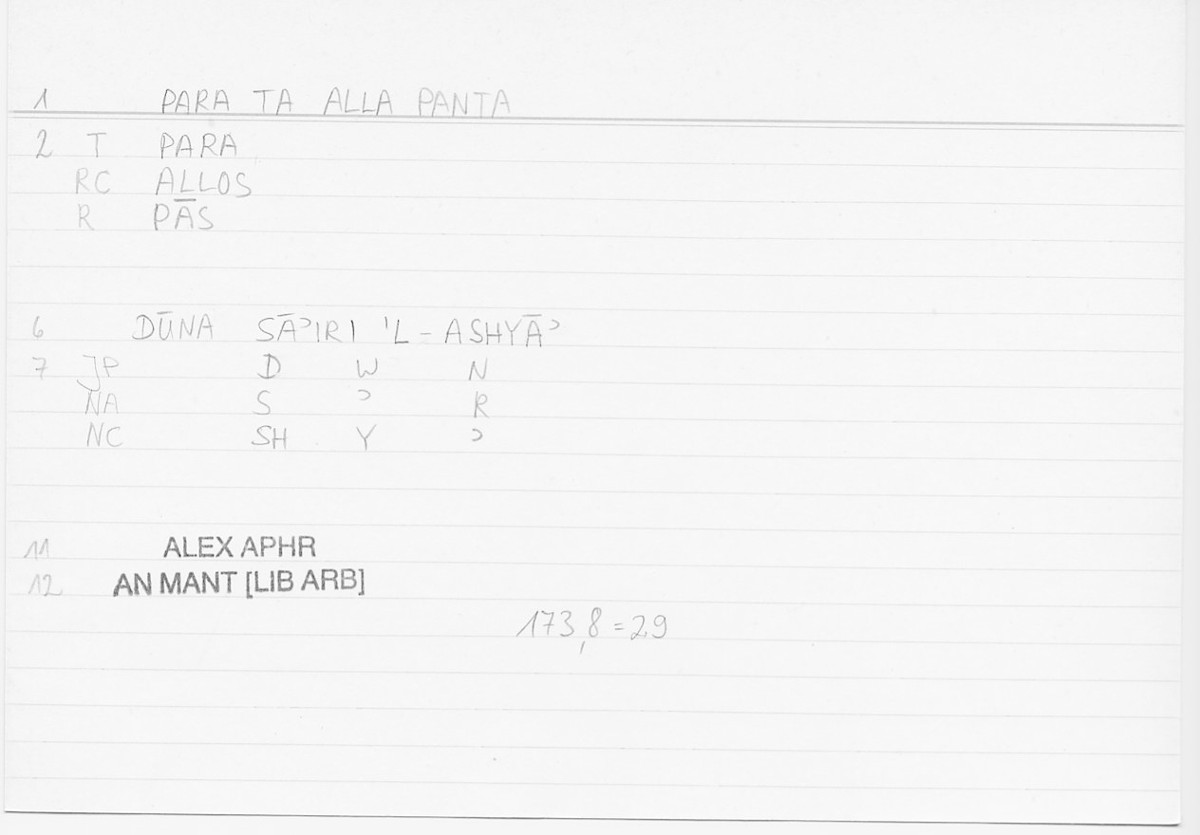 1 PARA TA ALLA PANTA
2 T PARA
RC ALLOS
R PĀS
6 DŪNA SĀʾIRI 'L-ASHYĀʾ
7 JP D W N
NA S ʾ R
NC SH Y ʾ
11 ALEX APHR
12 AN MANT [LIB ARB]
173,8=29